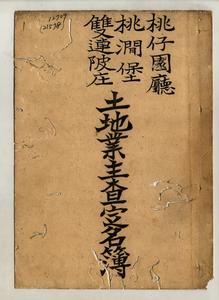 桃仔園廳
桃澗堡
雙連陂庄
土地業主查定名簿